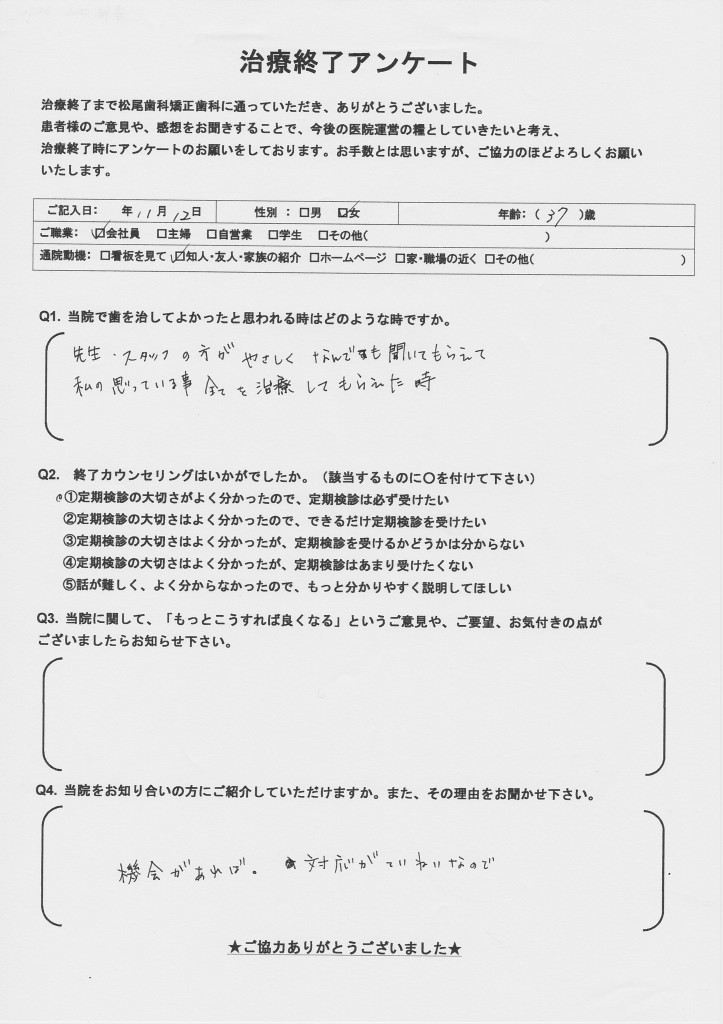 治療終了アンケート
治療終了まで松尾歯科矯正歯科に通っていただき、ありがとうございました。
患者様のご意見や、感想をお聞きすることで、今後の医院運営の糧としていきたいと考え、
治療終了時にアンケートのお願いをしております。お手数とは思いますが、ご協力のほどよろしくお願い
いたします。
ご記入日: 年 11月 12日 性別 : □男 ☑女 年齢:( 37 )歳
ご職業: ☑会社員 □主婦 □自営業 □学生 □その他( )
通院動機: □看板を見て ☑知人・友人・家族の紹介 □ホームページ □家・職場の近く □その他( )
Q1. 当院で歯を治してよかったと思われる時はどのような時ですか。
先生・スタッフの方が やさしく なんでも聞いてもらえて
私の思っている事 全てを治療してもらえた時
Q2. 終了カウンセリングはいかがでしたか。（該当するものに〇を付けて下さい）
①定期検診の大切さがよく分かったので、定期検診は必ず受けたい
②定期検診の大切さはよく分かったので、できるだけ定期検診を受けたい
③定期検診の大切さはよく分かったが、定期検診を受けるかどうかは分からない
④定期検診の大切さはよく分かったが、定期検診はあまり受けたくない
⑤話が難しく、よく分からなかったので、もっと分かりやすく説明してほしい
Q3. 当院に関して、「もっとこうすれば良くなる」というご意見や、ご要望、お気付きの点が
ございましたらお知らせ下さい。
Q4. 当院をお知り合いの方にご紹介していただけますか。また、その理由をお聞かせ下さい。
機会があれば。 対応がていねいなので
★ご協力ありがとうございました★